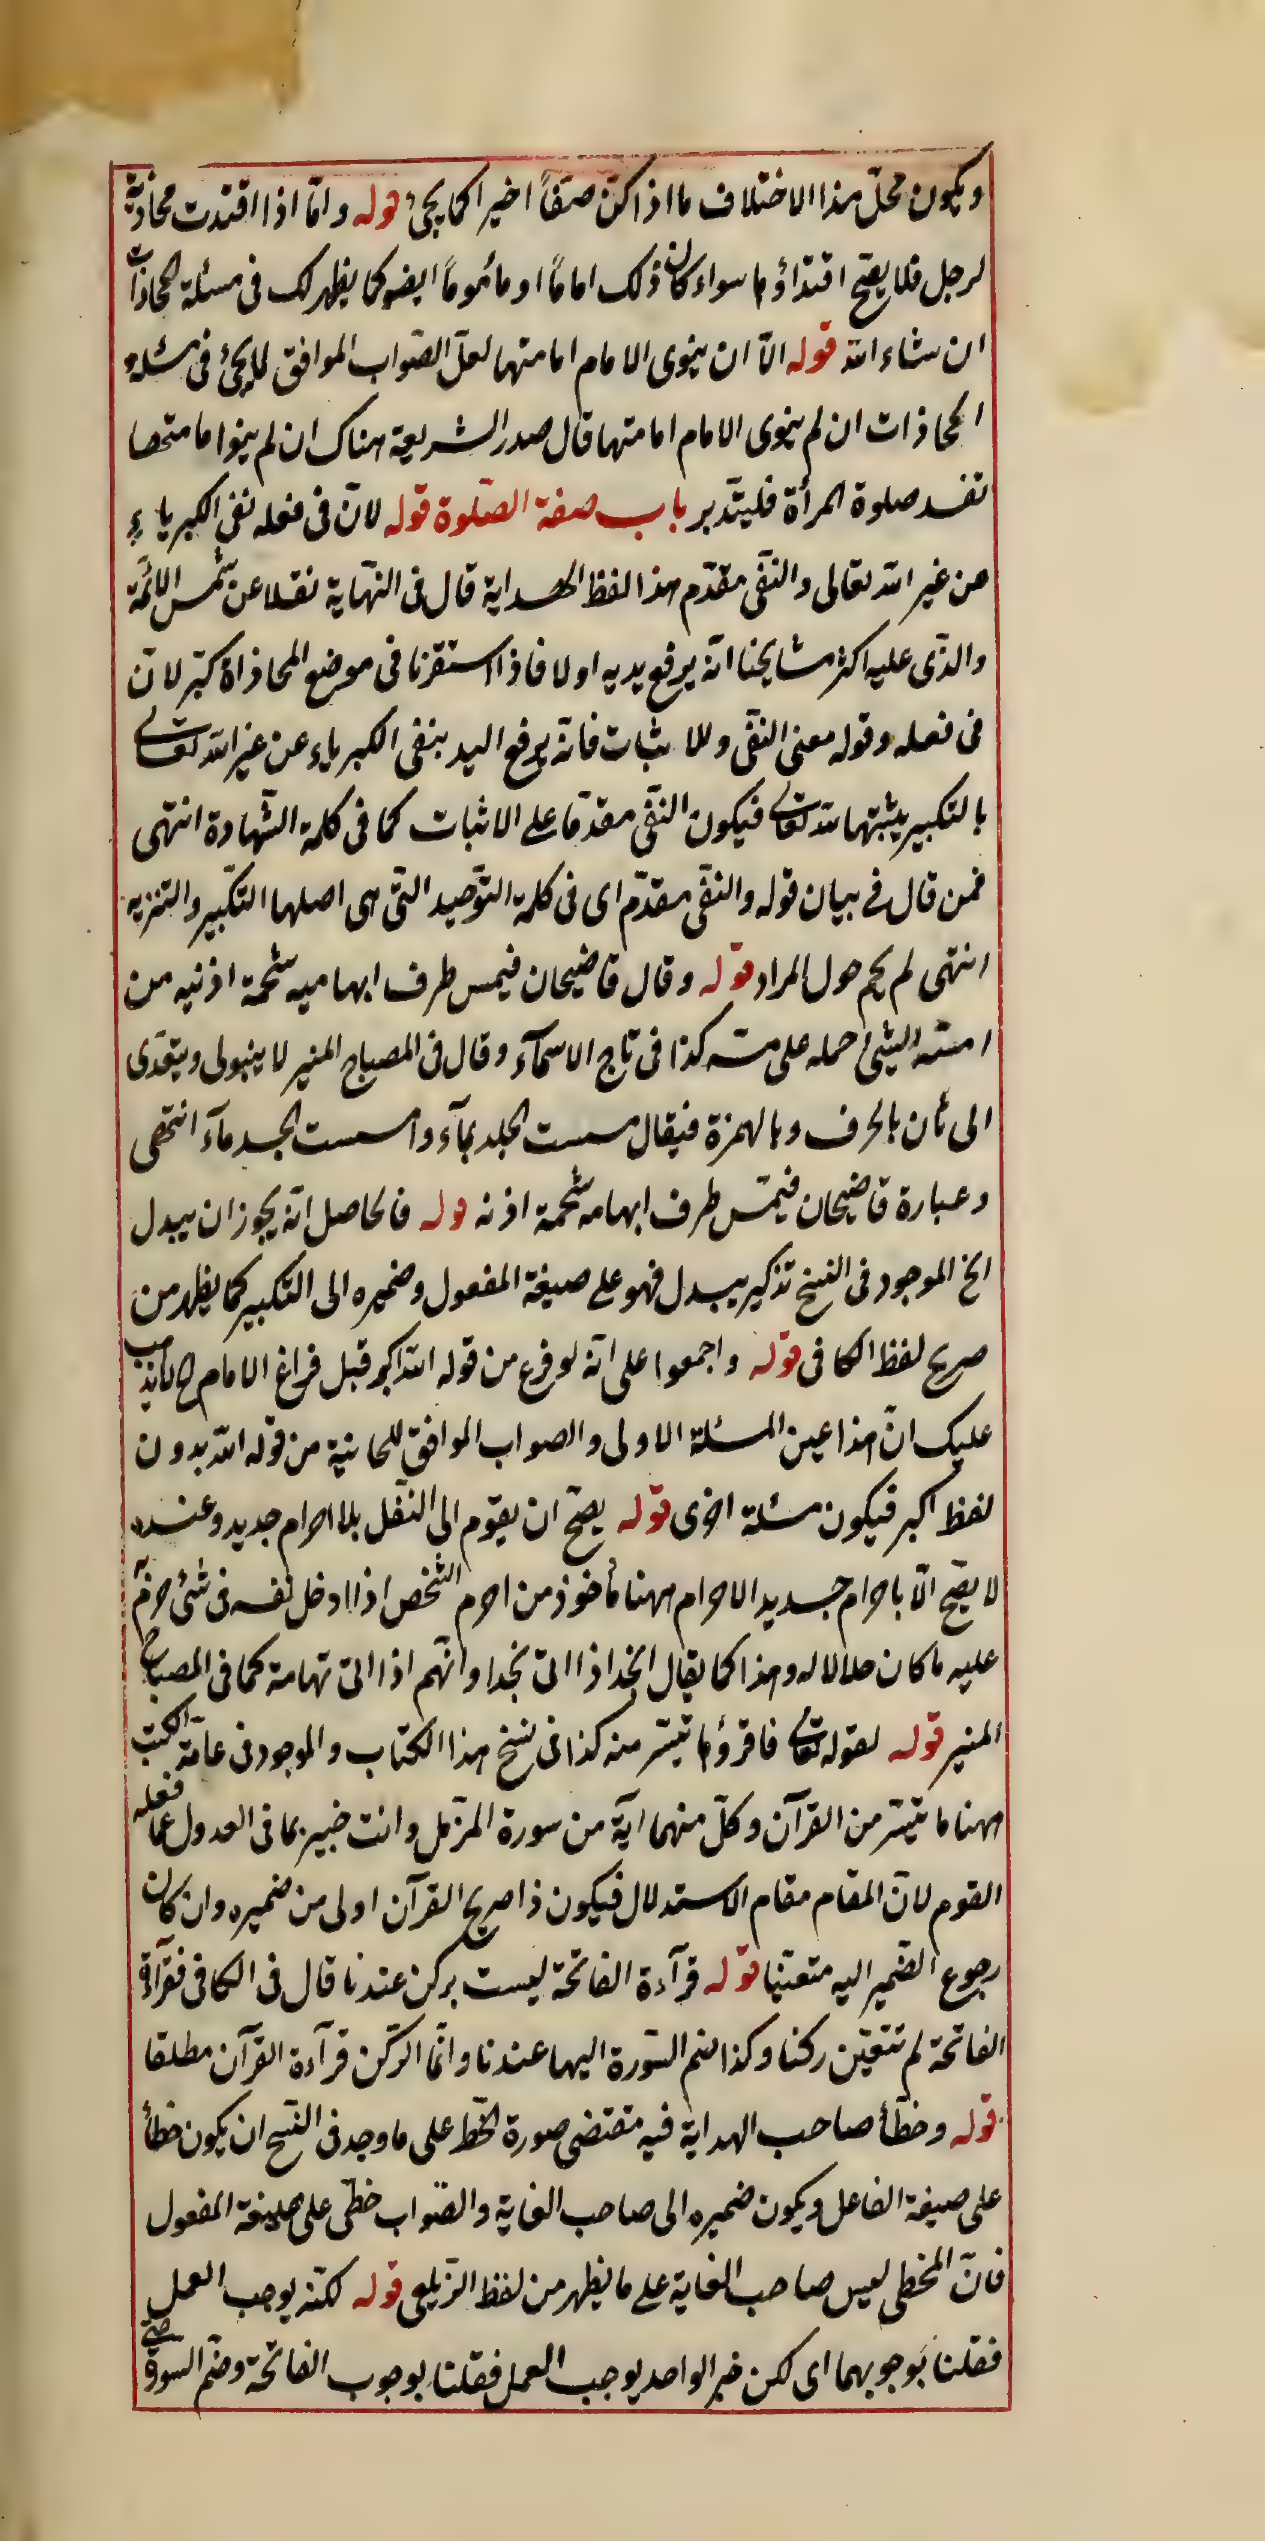 ويكون محلّ هذا الاختلاف ما اذا كنّ صفّاً اخيرا كما يجئ قوله وامّا اذا اقتدت محاذية
لرجل فلا يصحّ اقتداؤها سواء كان ذلك اماماً او مأموماً ايضو كما يظهر لك فى مسئلة المحاذات
ان شاء الله قوله الّا ان ينوى الامام امامتهما لعلّ الصّواب الموافق لما يجئ فى مسئلة
المحاذات ان لم ينوى الامام امامتها قال صدر الشريعة هناك ان لم ينوا مامتحصا
تفسد صلوة المرأة فليتدّبر باب صفة الصّلوة قوله لانّ فى فعله نفى الكبرياء
عن غير الله تعالى والنّفى مقدّم هذا لفظ الهداية قال فى النّهاية نقلا عن شمس الائمّة
والذّى عليه اكثر مشايخنا انّه يرفع يديه اولا فاذا استقرّنا فى موضع المحاذاة كبّر لانّ
فى فعله وقوله معنى النّفى وللاثبات فانّه يرفع اليد ينفى الكبرياء عن غير الله تعالى
بالتكبير يثبتها لله تعالى فيكون النّفى مقدّما على الاثبات كما فى كلمة الشّهادة انتهى
فمن قال فى بيان قوله والنّفى مقدّم اى فى كلمة التّوحيد التّى هى اصلها التكّبير والتنزيه
انتهى لم يحم حول المراد قوله وقال قاضيحان فيمس طرف ابهاميه شحمة اذنيه من
امسّه الشئ حمله على مسّه كذا فى تاج الاسمآء وقال فى المصباح المنير لا ينبولى ويتعدّى
الى ثان بالحرف وبالهمزة فيقال مسست الجلد بمآء وامسست الجسد مآء انتهى
وعبارة قاضيحان فيمسّ طرف ابهامه شحمة اذنه قوله فالحاصل انّه يجوز ان يبدل
الخ الموجود فى النسخ تذكير يبدل فهو على صيغة المفعول وضميره الى التكبير كما يظهر من
صريح لفظ الكافى قوله واجمعوا على انّه لو فرغ من قوله الله اكبر قبل فراغ الامام الخ لا يذهب
عليك انّ هذا عين المسئلة الاولى والصواب الموافق للخانية من قوله الله بدون
لفظ اكبر فيكون مسئلة اخرى قوله يصحّ ان يقوّم الى النّفل بلا احرام جديد وعنده
لا يصّح الّا باحرام جديد الاحرام ههنا مأخوذ من احرم الشّخص اذا ادخل نفسه فى شئ حرّم
عليه ما كان حلالا له وهذا كما يقال انجد اذا اتى نجدا واتّهم اذا اتى تهامة كما فى المصباح
المنير قوله لقوله تعالى فاقرؤا ما تيسّر منه كذا فى نسخ هذا الكتاب والموجود فى عامّة الكتب
ههنا ما تيسّر من القرآن وكلّ منهما اية من سورة المزّمل وانت خبير بما فى العدول عمّا فعله
القوم لانّ المقام مقام الاستدلال فيكون ذا صريح القرآن اولى من ضميره وان كان
رجوع الضّمير اليه متعيّنا قوله قرآءة الفاتحة ليست بركن عندنا قال فى الكافى فقرآءة
الفاتحة لم تتعيّن ركنا وكذا ضم السّورة اليها عندنا وانّما الركّن قرآءة القرآن مطلقا
قوله وخطّأ صاحب الهداية فيه مقتضى صورة الخّط على ما وجد فى النسّخ ان يكون خطّأ
على صيغة الفاعل ويكون ضميره الى صاحب الغاية والصّواب خطّى على صيغة المفعول
فانّ المخطى ليس صاحب الغاية على ما يظهر من لفظ الزّيلعى قوله لكنّه يوجب العمل
فقلنا بوجوبهما اى لكن خبر الواحد يوجب العمل فقلنا بوجوب الفاتحة وضّم السورة